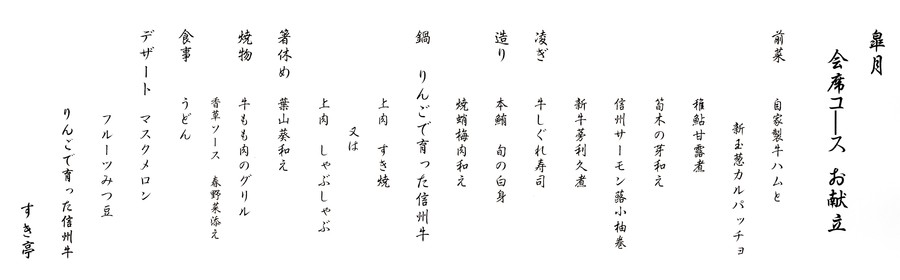 皐月
会席コース お献立
前菜 自家製牛ハムと
新玉葱カルパッチョ
稚鮎甘露煮
筍木の芽和え
信州サーモン蕗小柚巻
新牛蒡利久煮
凌ぎ 牛しぐれ寿司
造り 本鮪 旬の白身
焼蛸梅肉和え
鍋 りんごで育った信州牛
上肉 すき焼
又は
上肉 しゃぶしゃぶ
箸休め 葉山葵和え
焼物 牛もも肉のグリル
香草ソース 春野菜添え
食事 うどん
デザート マスクメロン
フルーツみつ豆
りんごで育った信州牛
すき亭